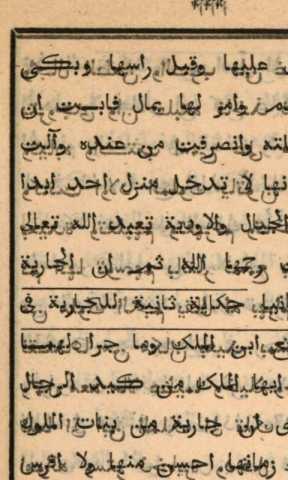 عليها وقبل راسها وبكى
وامر لها بمال فابت ان
وانصرفت من عنده وآلت
انها لا تدخل منزل احد ابدا
الجبال والاودية تعبد الله تعالى
رحمها الله ثم ان الجارية
حكاية ثانية للجارية في
ابن الملك وما جرا لهما
ايها الملك من كيد الرجال
ان جارية من بنات الملوك
زمانها احسن منها ولا افرس